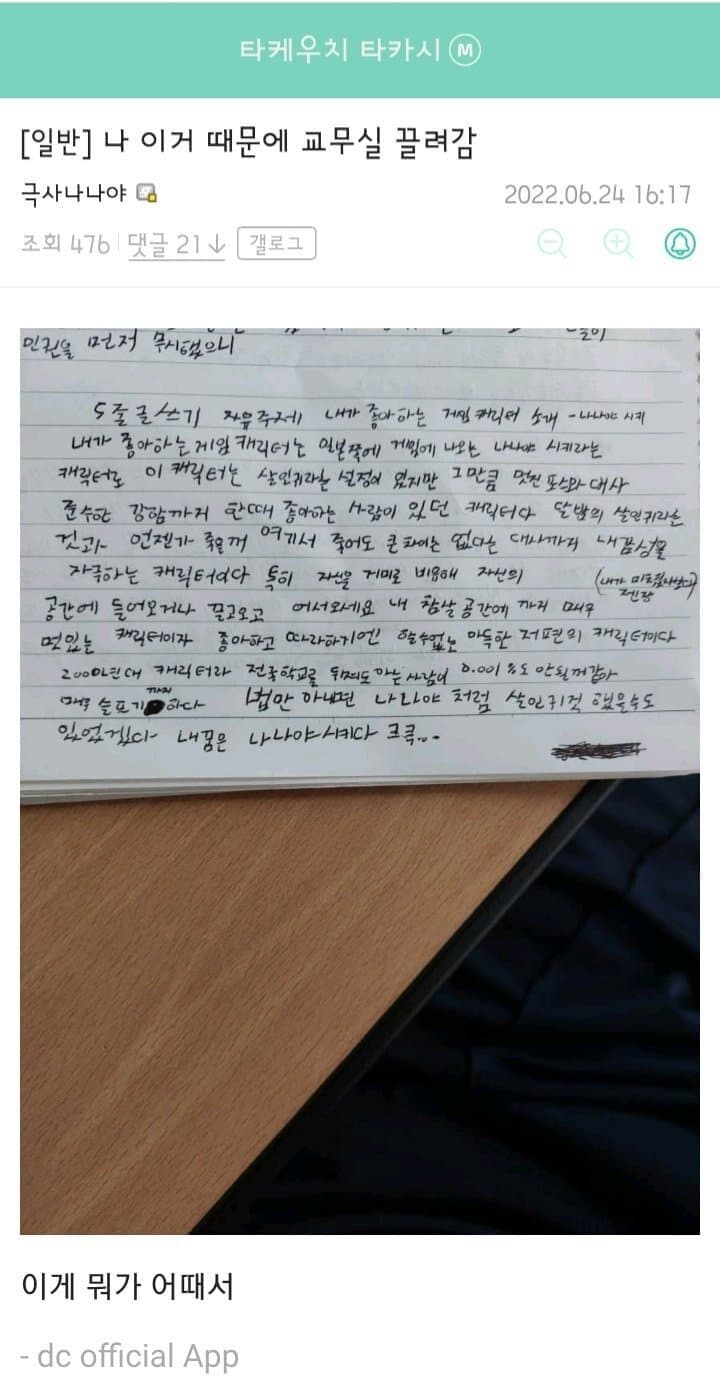 타케우치 타카시 M
[일반] 나 이거 때문에 교무실 끌려감
극사나나야
2022.06.24 16:17
조회 476 댓글 21↓ 갤로그
인권을 먼저 무시했으니
5줄글쓰기 자유주제 내가 좋아하는 게임 캐릭터 소개 - 나나야 시키
내가 좋아하는게임 캐릭터는 일본쪽에 게임에 나오는 나나야 시키라는
캐릭터로 이 캐릭터는 살인귀라는 설정이 있지만 그만큼 멋진 포스와 대사
준수한 강함까지 한때 좋아하는 사람이 있던 캐릭터다 달밤의 살인귀라는
것과 언젠가 죽을꺼 여기서 죽어도 큰 차이는 없다는 대사까지 내감성을
자극하는 캐릭터이다 특히 자신을 거미로 비유해 자신의
(내가 미쳤나보다) 젠장
공간에 들어오거나 끌고오고 어서와세요 내 참살공간에 까지 매우
멋있는 캐릭터이자 좋아하고 따라하기엔 할수없는 아득한 저편의 캐릭터이다
2000년대 캐릭터라 전국학교를 뒤져도 아는 사람이 0.001%도 안될꺼같아
매우 슬프기까지 하다 법만 아니면 나나야 처럼 살인귀적 했을수도
있었겠다 내꿈은 나나야시키다 크큭...
이게 뭐가 어때서
- dc official App